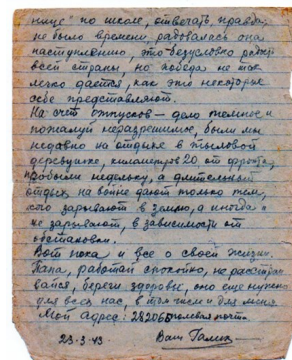 нице" по школе, отвечать правда,
не было времени, радовалась она
наступлению, это безусловно радост
всей страны, но победа не так
легко дается, как это некоторые
себе представляют.
На счет отпусков – дело темное и
пожалуй неразрешимое, были мы
недавно на отдыхе в тыловой
деревушке, километров 20 от фронта,
пробыли недельку, а длительный
отдых на войне дают только тем,
кого зарывают в землю, а иногда и
не зарывают, в зависимости от
обстановки.
Вот пока и все о своей жизни.
Папа, работай спокойно, не расстраи
вайся, береги здоровье, оно еще нужно
для всех нас, в том числе и для меня
Мой адрес: 28206 полевая почта.
23-3-43 Ваш